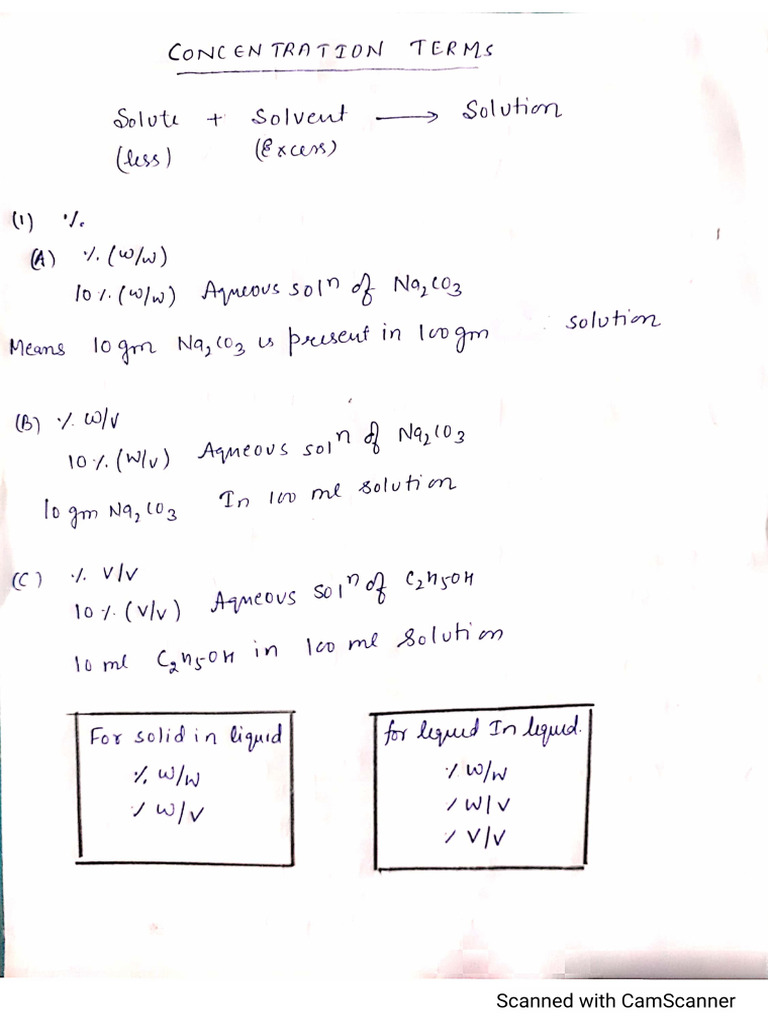 CONCENTRATION TERMS
Solute + Solvent ⟶ Solution
(less) (Excess)
(1) %
(A) % (w/w)
10% (w/w) Aqueous solⁿ of Na₂CO₃
Means 10 gm Na₂CO₃ is present in 100 gm solution
(B) % w/v
10% (w/v) Aqueous solⁿ of Na₂CO₃
10 gm Na₂CO₃ In 100 ml solution
(C) % v/v
10% (v/v) Aqueous solⁿ of C₂H₅OH
10 ml C₂H₅OH in 100 ml solution
For solid in liquid
% w/w
% w/v
for liquid In liquid.
% w/w
% w/v
% v/v
Scanned with CamScanner